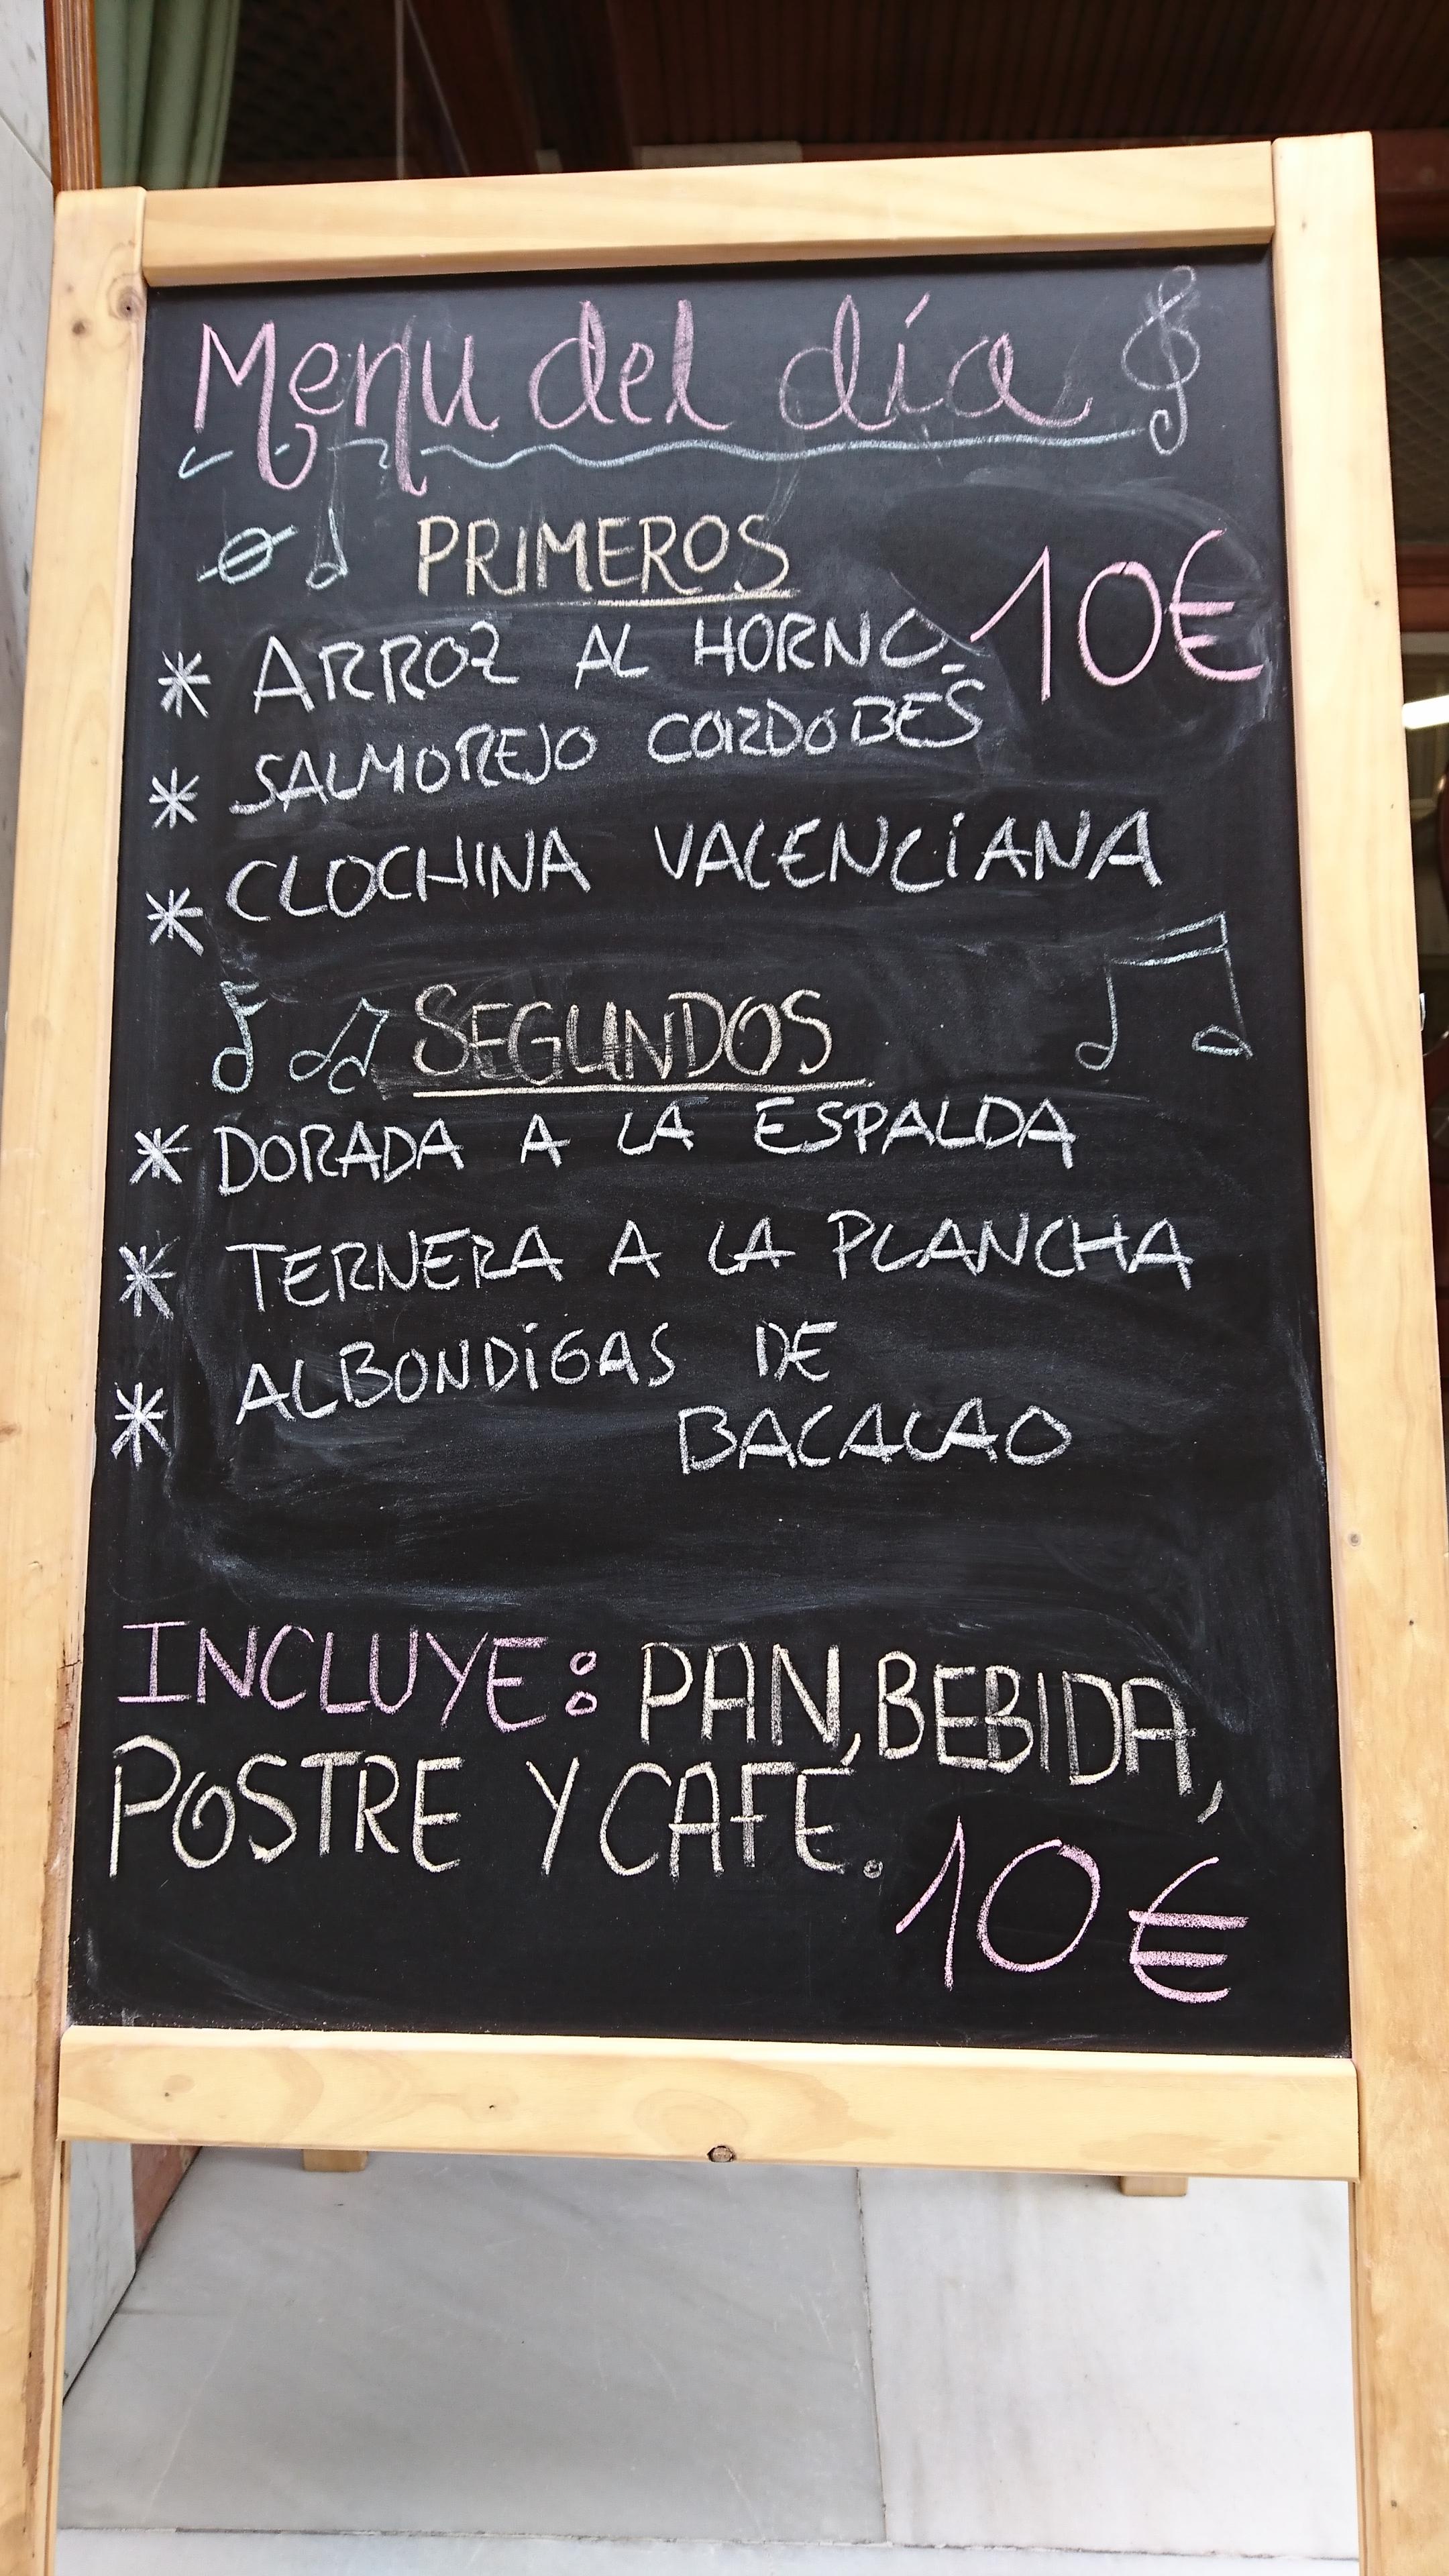 Menu del día
PRIMEROS
10€
* ARROZ AL HORNO.
* SALMOREJO CORDOBÉS
* CLOCHINA VALENCIANA
SEGUNDOS
* DORADA A LA ESPALDA
* TERNERA A LA PLANCHA
* ALBONDIGAS DE
BACALAO
INCLUYE: PAN, BEBIDA,
POSTRE Y CAFÉ.
10€